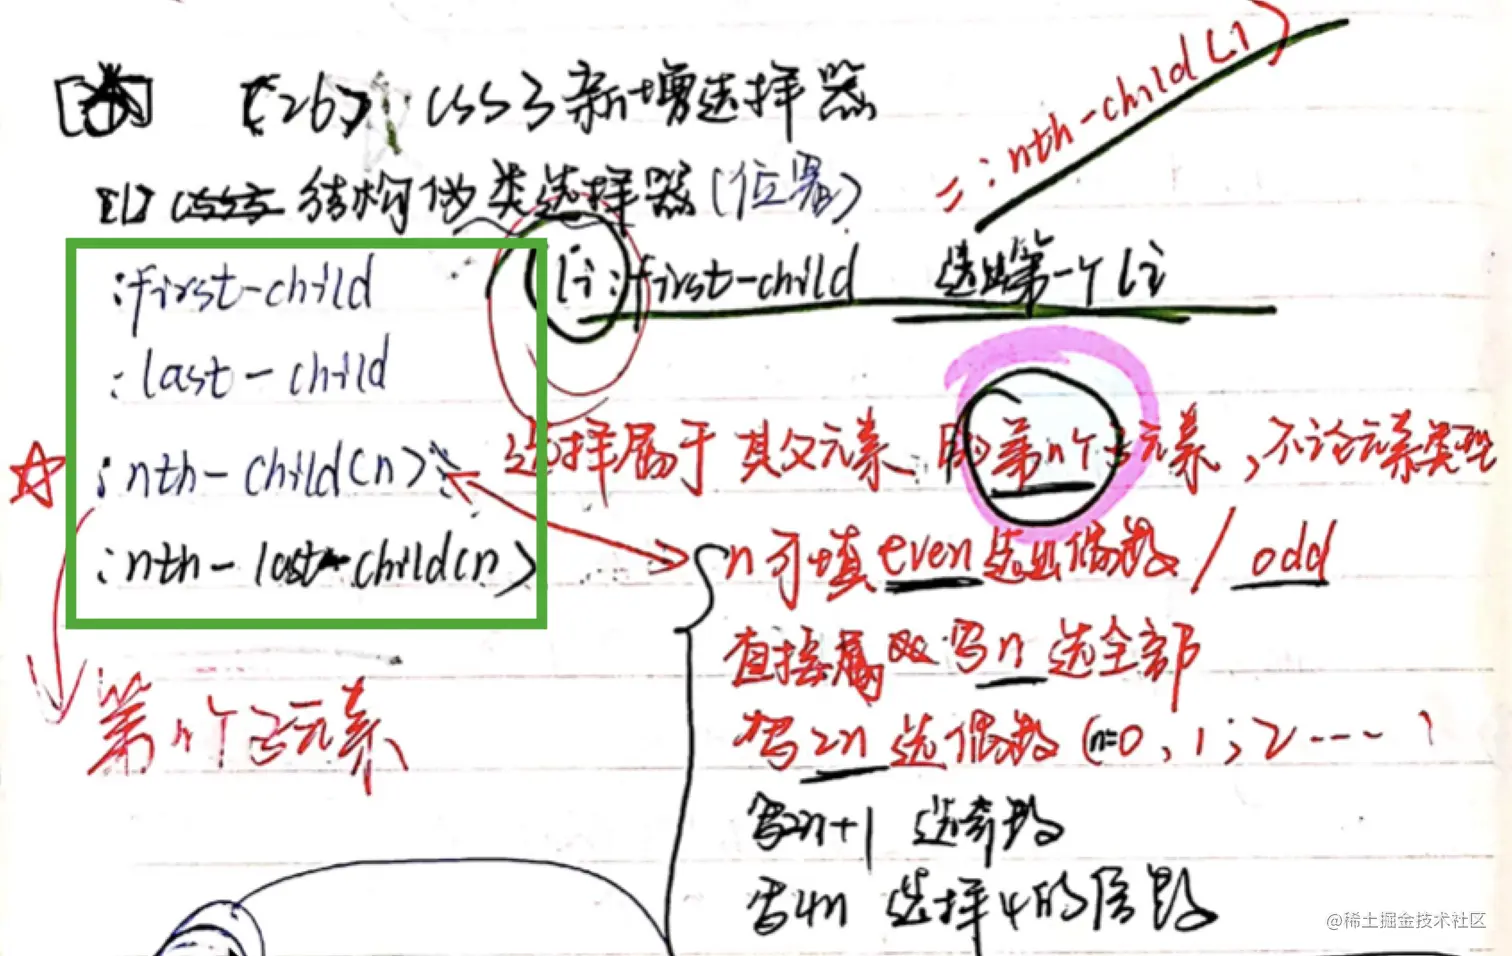 =:nth-child(1)
【26】css3新增选择器
【1】结构伪类选择器(位置)
:first-child
li:first-child 选出第一个li
:last-child
:nth-child(n):
选择属于其父元素的第n个子元素,不论元素类型
:nth-last-child(n)
n可填even选出偶数/odd
直接写n选全部
第n个子元素
写2n选偶数(n=0,1,2----)
写2n+1 选奇数
写4n 选择4的倍数
@稀土掘金技术社区